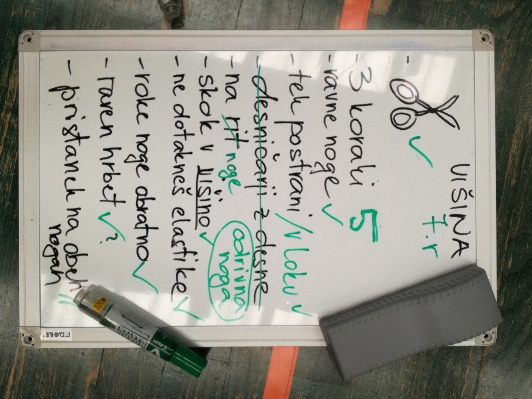 VIŠINA
7. r
- 3 koraki 5
- ravne noge
- tek postrani / v loku
- desničarji z desne
- na rit noge odrivna noga
- skok v višino
- ne dotakneš elastike
- roke noge obratno
- raven hrbet ?
- pristanek na obeh nogah
DAHLE